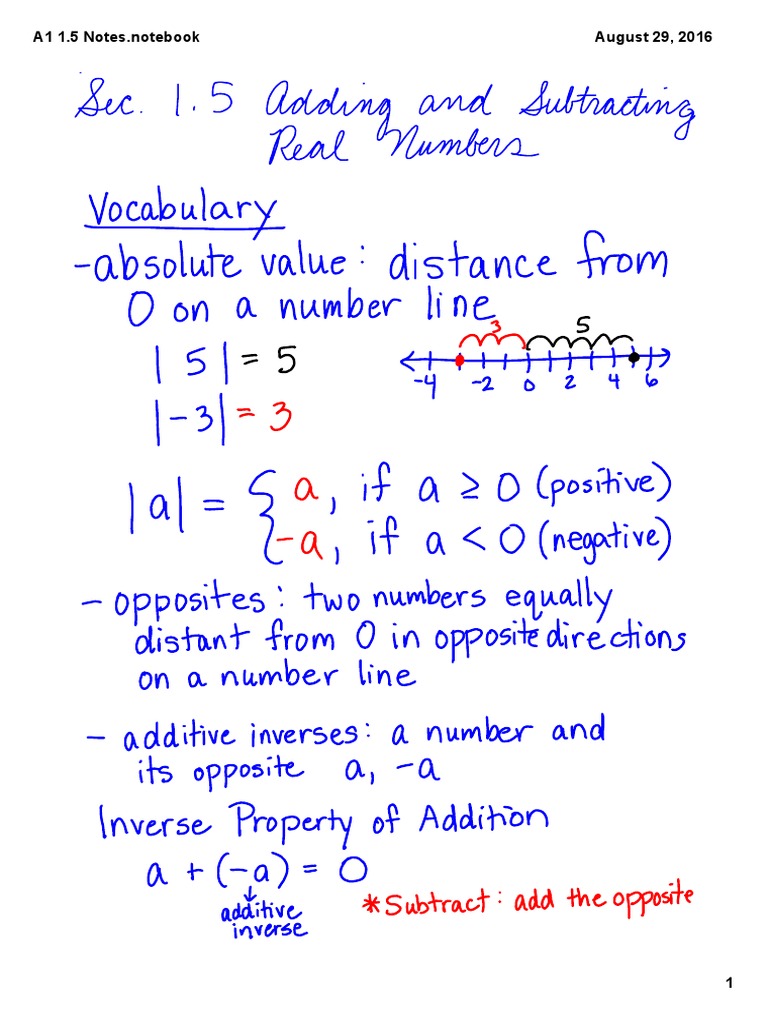 A1 1.5 Notes.notebook
August 29, 2016
Sec. 1.5 Adding and Subtracting
Real Numbers
Vocabulary
-absolute value: distance from
0 on a number line
3 5
|5| = 5
-4 -2 0 2 4 6
|-3| = 3
|a| = { a, if a ≥ 0 (positive)
-a, if a < 0 (negative)
- opposites: two numbers equally
distant from 0 in opposite directions
on a number line
- additive inverses: a number and
its opposite a, -a
Inverse Property of Addition
a + (-a) = 0
additive
inverse
*Subtract: add the opposite
1